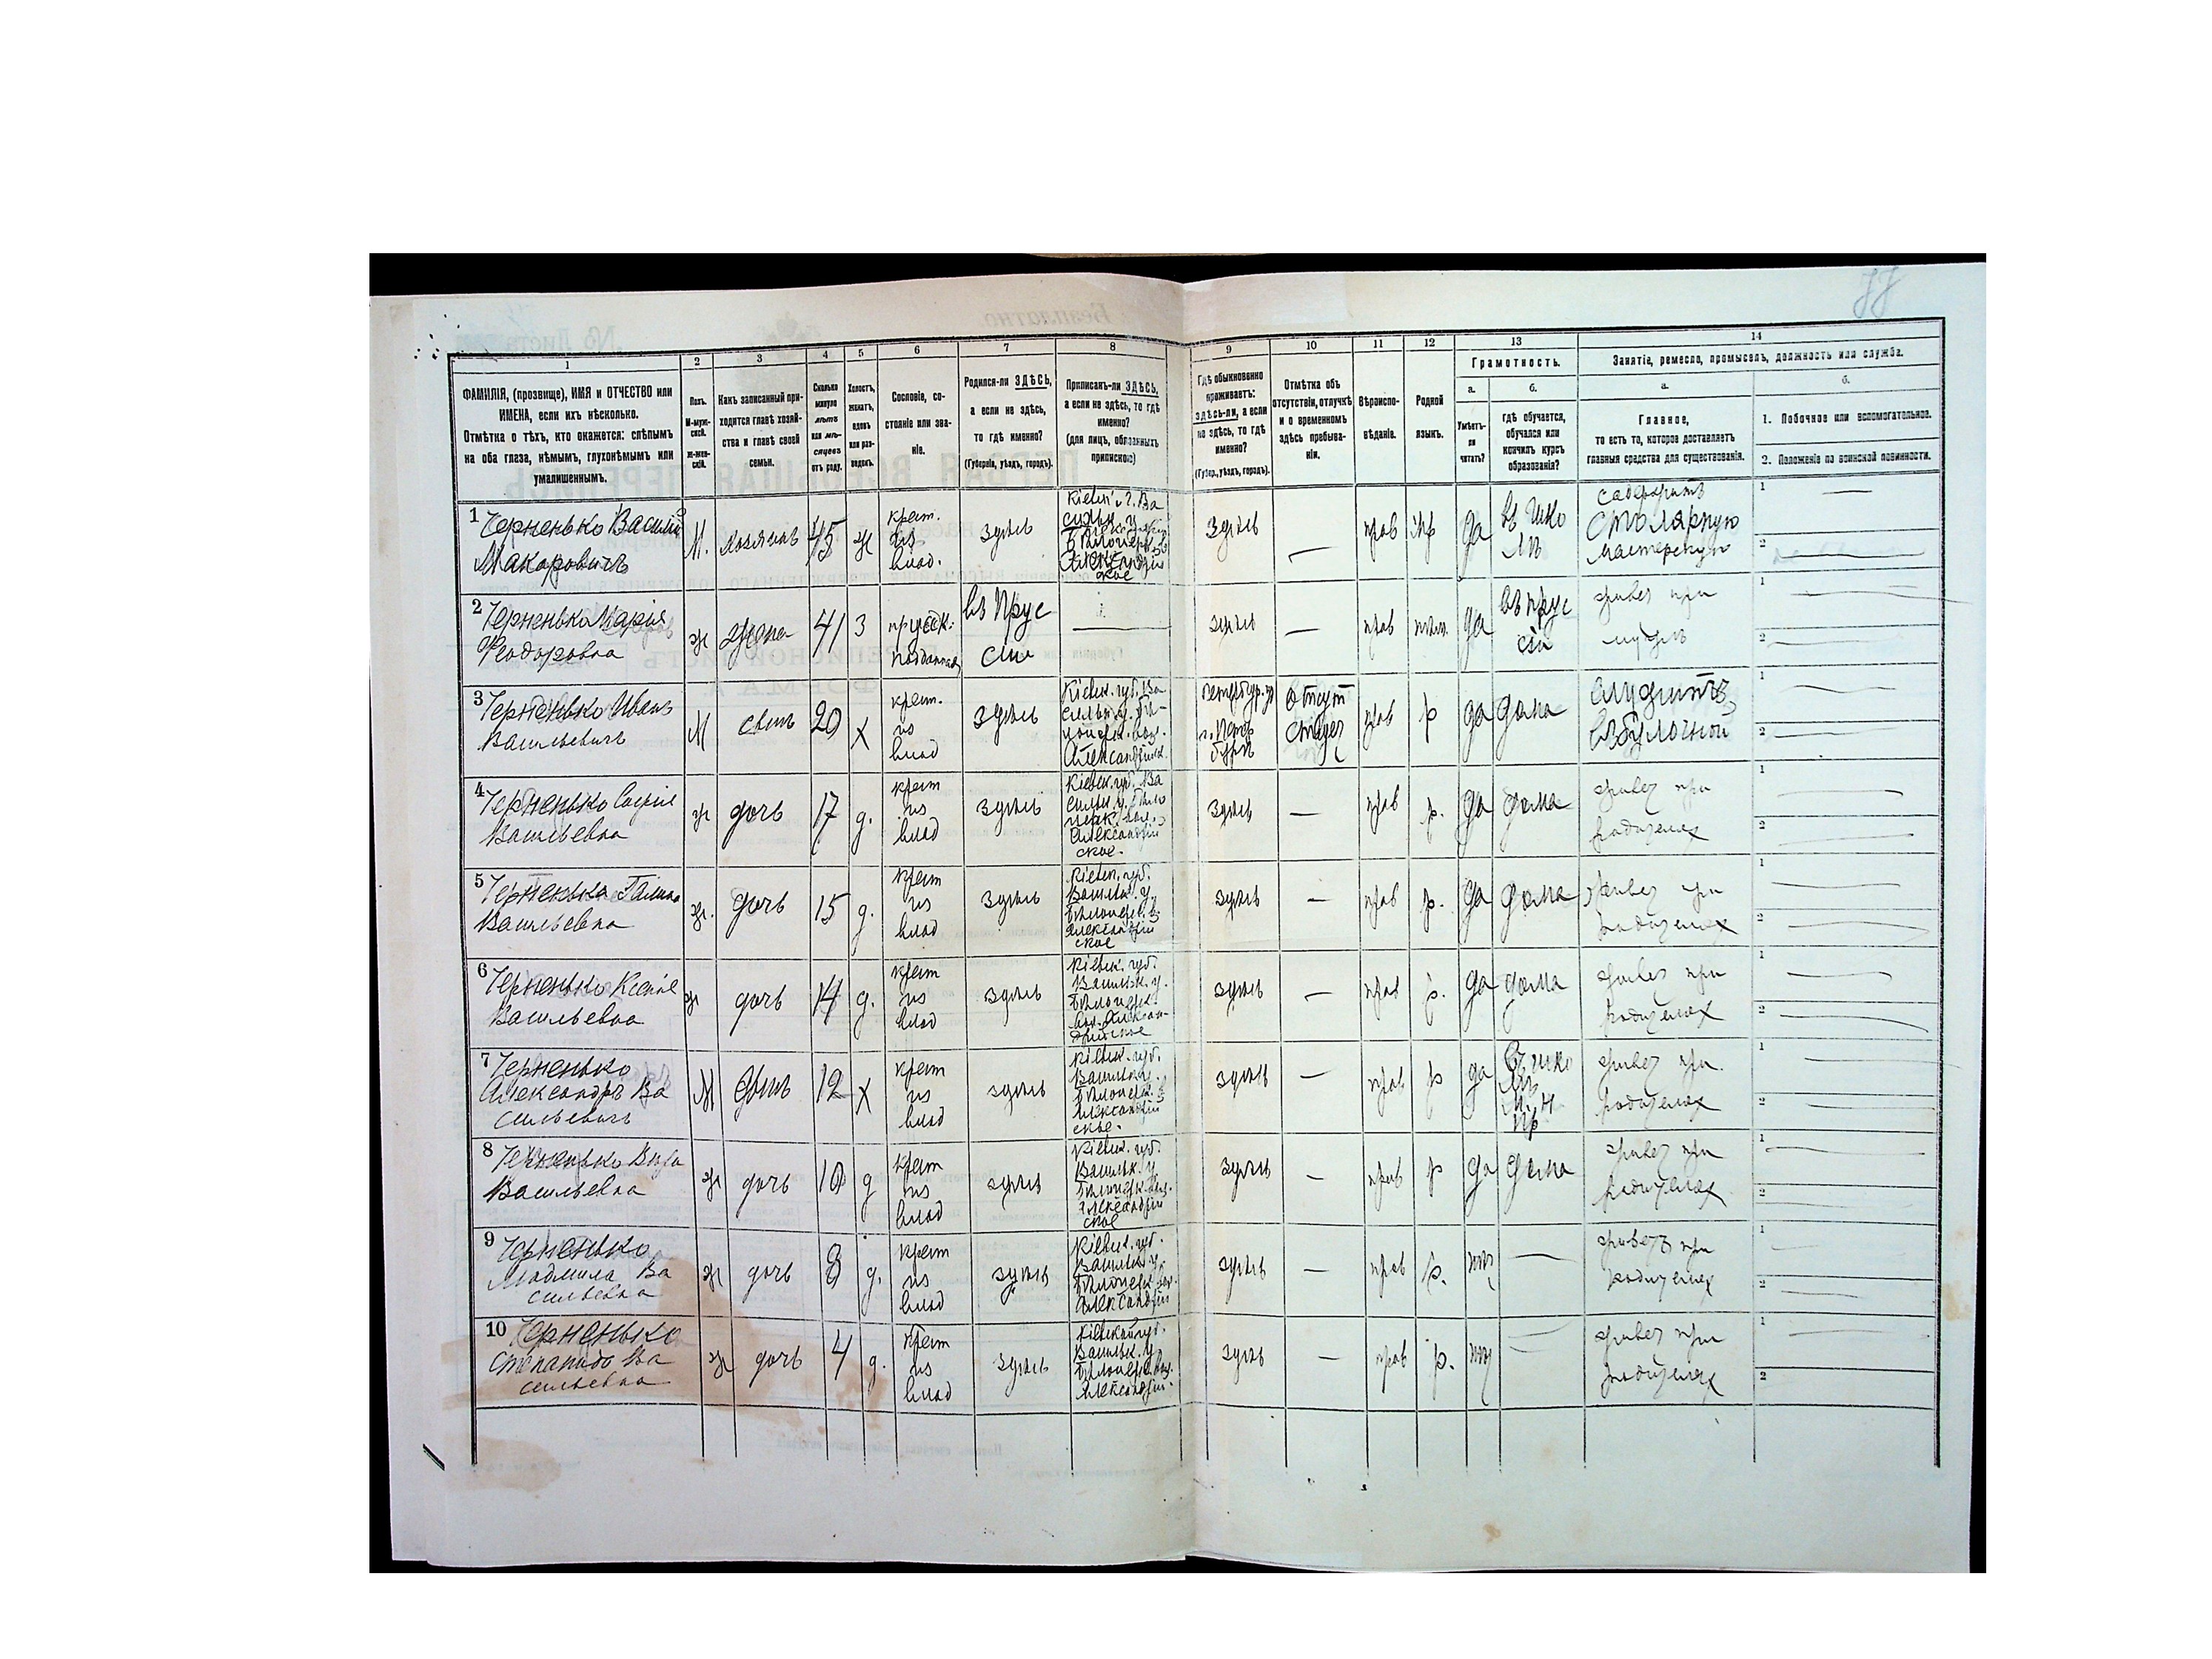 77
1
2
3
4
5
6
7
8
9
10
11
12
13
14
ФАМИЛІЯ, (прозвище), ИМЯ и ОТЧЕСТВО или
ИМЕНА, если ихъ нѣсколько.
Отмѣтка о тѣхъ, кто окажется: слѣпымъ
на оба глаза, нѣмымъ, глухонѣмымъ или
умалишеннымъ.
Полъ.
М-муж-
ской.
ж-жен-
скій.
Какъ записанный при-
ходится главѣ хозяй-
ства и главѣ своей
семьи.
Сколько
минуло
лѣтъ
или мѣ-
сяцевъ
отъ роду.
Холостъ,
женатъ,
вдовъ
или раз-
веденъ.
Сословіе, со-
стояніе или зва-
ніе.
Родился-ли ЗДѢСЬ,
а если не здѣсь,
то гдѣ именно?
(Губернія, уѣздъ, городъ).
Приписанъ-ли ЗДѢСЬ,
а если не здѣсь, то гдѣ
именно?
(для лицъ, обязанныхъ
припискою)
Гдѣ обыкновенно
проживаетъ:
здѣсь-ли, а если
не здѣсь, то гдѣ
именно?
(Губер., уѣздъ, городъ).
Отмѣтка объ
отсутствіи, отлучкѣ
и о временномъ
здѣсь пребыва-
ніи.
Вѣроиспо-
вѣданіе.
Родной
языкъ.
Грамотность.
а.
б.
Умѣетъ-
ли
читать?
гдѣ обучается,
обучался или
кончилъ курсъ
образованія?
Занятіе, ремесло, промыселъ, должность или служба.
а.
б.
Главное,
то есть то, которое доставляетъ
главныя средства для существованія.
1. Побочное или вспомогательное.
2. Положеніе по воинской повинности.
1 Черненько Василій
Макаровичъ
М. хозяинъ 45 ж
крест.
из
влад.
здѣсь
здѣсь
—
прав
да
въ шко
лѣ
содержитъ
столярную
мастерскую
2 Черненько Марія
Феодоровна
ж жена 41 З
прусск.
подданная
въ Прус
сіи
—
здѣсь
—
прав
да
въ Прус
сіи
живет при
мужѣ
3 Черненько Иванъ
Васильевичъ
М сынъ 20 х
крест.
из
влад
здѣсь
отсут
ствует
прав р да дома
служитъ
въ булочной
4 Черненько Софія
Васильевна
ж дочь 17 д.
крест
из
влад
здѣсь
Кіевск. губ. Ва
Александрій
ское.
здѣсь — прав р. да дома
живет при
родителях
5 Черненько Галина
Васильевна
ж. дочь 15 д.
крест
из
влад
здѣсь
Александрій
ское
здѣсь — прав р. да дома
живет при
родителях
6 Черненько Ксенія
Васильевна
ж дочь 14 д.
крест
из
влад
здѣсь
Кіевск. губ.
Васильк. у.
вол. Алексан-
дрійское
здѣсь — прав р. да дома
живет при
родителях
7 Черненько
Александръ Ва
сильевичъ
М сынъ 12 х
крест
из
влад
здѣсь
Кіевск. губ.
Васильк. у.
Александрій
ское.
здѣсь — прав р да
живет при
родителях
8 Черненько Вѣра
Васильевна
ж дочь 10 д
крест
из
влад
здѣсь
Кіевск. губ.
Васильк. у
Александрій
ское
здѣсь — прав р да дома
живет при
родителях
9 Черненько
Людмила Ва
сильевна
ж дочь 8 д.
крест
из
влад
здѣсь
Кіевск. губ.
Васильк. у
Александрій
здѣсь — прав р. нѣт —
живетъ при
родителях
10 Черненько
Степанида Ва
сильевна
ж дочь 4 д.
крест
из
влад
здѣсь
Кіевской губ.
Васильк. у
Александрій.
здѣсь — прав р. нѣт —
живет при
родителях